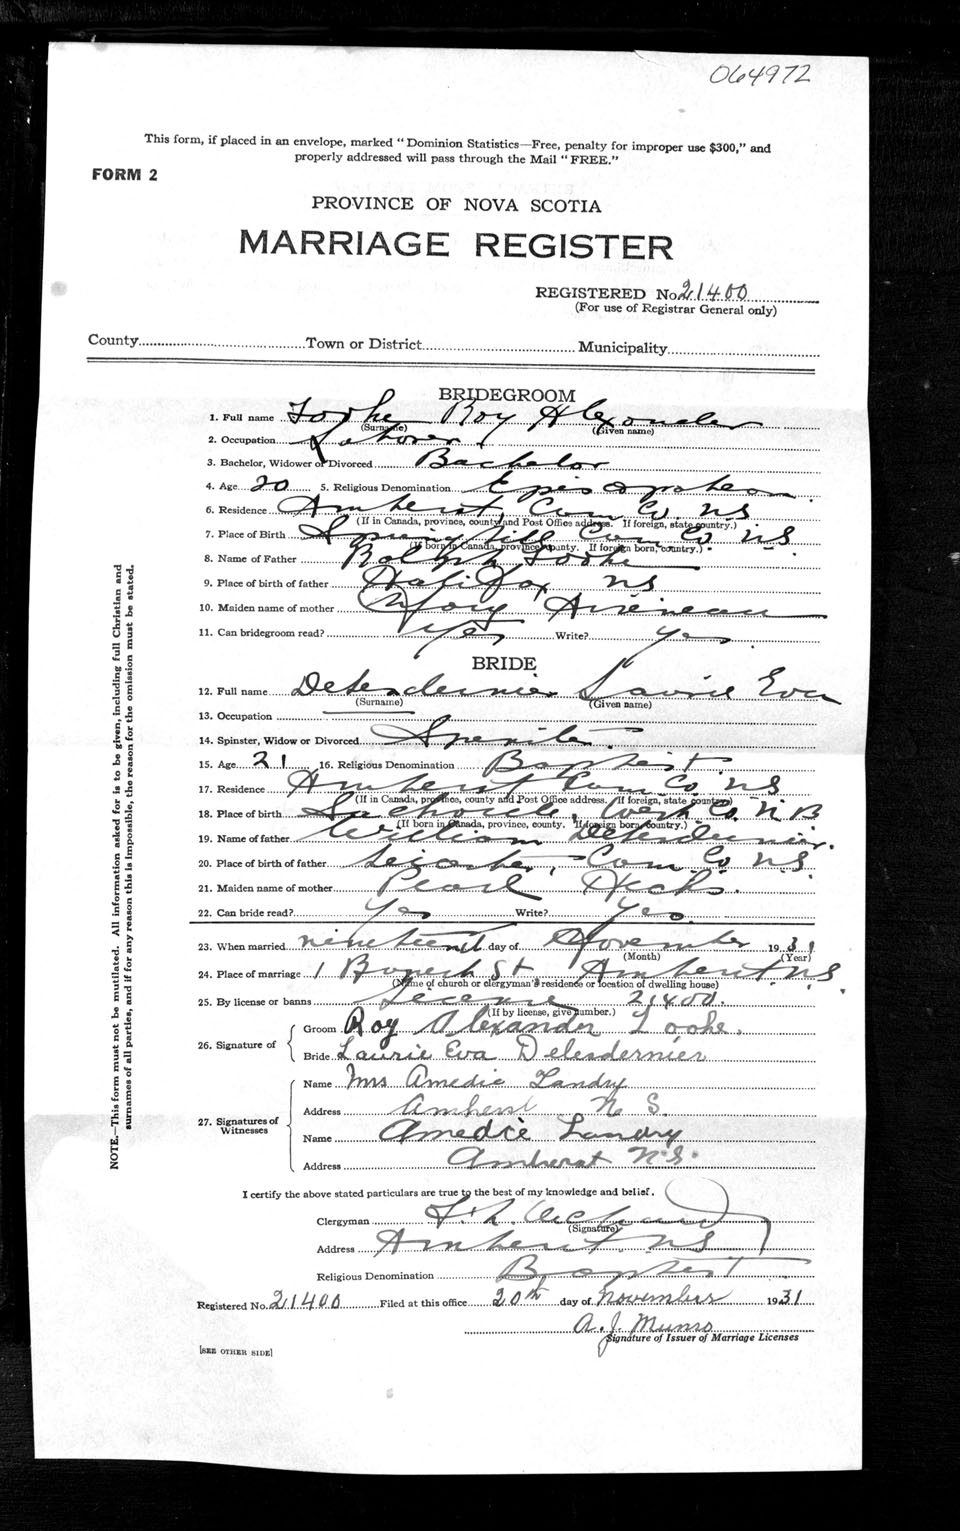 064972
This form, if placed in an envelope, marked "Dominion Statistics—Free, penalty for improper use $300," and
properly addressed will pass through the Mail "FREE."
FORM 2
PROVINCE OF NOVA SCOTIA
MARRIAGE REGISTER
REGISTERED No. 21400
(For use of Registrar General only)
County Town or District Municipality
BRIDEGROOM
1. Full name Tooke Roy Alexander
(Surname) (Given name)
2. Occupation Laborer
3. Bachelor, Widower or Divorced Bachelor
4. Age 20 5. Religious Denomination Episcopalian
6. Residence Amherst, Cum Co. NS
(If in Canada, province, county and Post Office address. If foreign, state country.)
7. Place of Birth Springhill Cum Co N.S.
(If born in Canada, province, county. If foreign born, country.)
8. Name of Father Ralph Tooke
9. Place of birth of father Halifax NS
10. Maiden name of mother Mary Arseneau
11. Can bridegroom read? Yes Write? yes
BRIDE
12. Full name Delesdernier Laurie Eva
(Surname) (Given name)
13. Occupation
14. Spinster, Widow or Divorced
15. Age 21 16. Religious Denomination Baptist
17. Residence Amherst Cum Co. NS
(If in Canada, province, county and Post Office address. If foreign, state country)
18. Place of birth Sackville, West Co. N B
(If born in Canada, province, county. If foreign born, country.)
19. Name of father William Delesdernier.
20. Place of birth of father Cum Co NS.
21. Maiden name of mother Pearl
22. Can bride read? Yes Write? Yes.
23. When married nineteenth day of November 1931
(Month) (Year)
24. Place of marriage 1 St Amherst N.S.
(Name of church or clergyman's residence or location of dwelling house)
25. By license or banns License 21400.
(If by license, give number.)
26. Signature of
Groom Roy Alexander Tooke.
Bride Laurie Eva Delesdernier
27. Signatures of Witnesses
Name Mrs Amedie Landry
Address Amherst N S.
Name Amedie Landry
Address Amherst N.S.
I certify the above stated particulars are true to the best of my knowledge and belief.
Clergyman
(Signature)
Address Amherst NS
Religious Denomination Baptist
Registered No. 21400 Filed at this office 20th day of November 1931
A. J. Munro
Signature of Issuer of Marriage Licenses
[SEE OTHER SIDE]
NOTE.—This form must not be mutilated. All information asked for is to be given, including full Christian and
surnames of all parties, and if for any reason this is impossible, the reason for the omission must be stated.